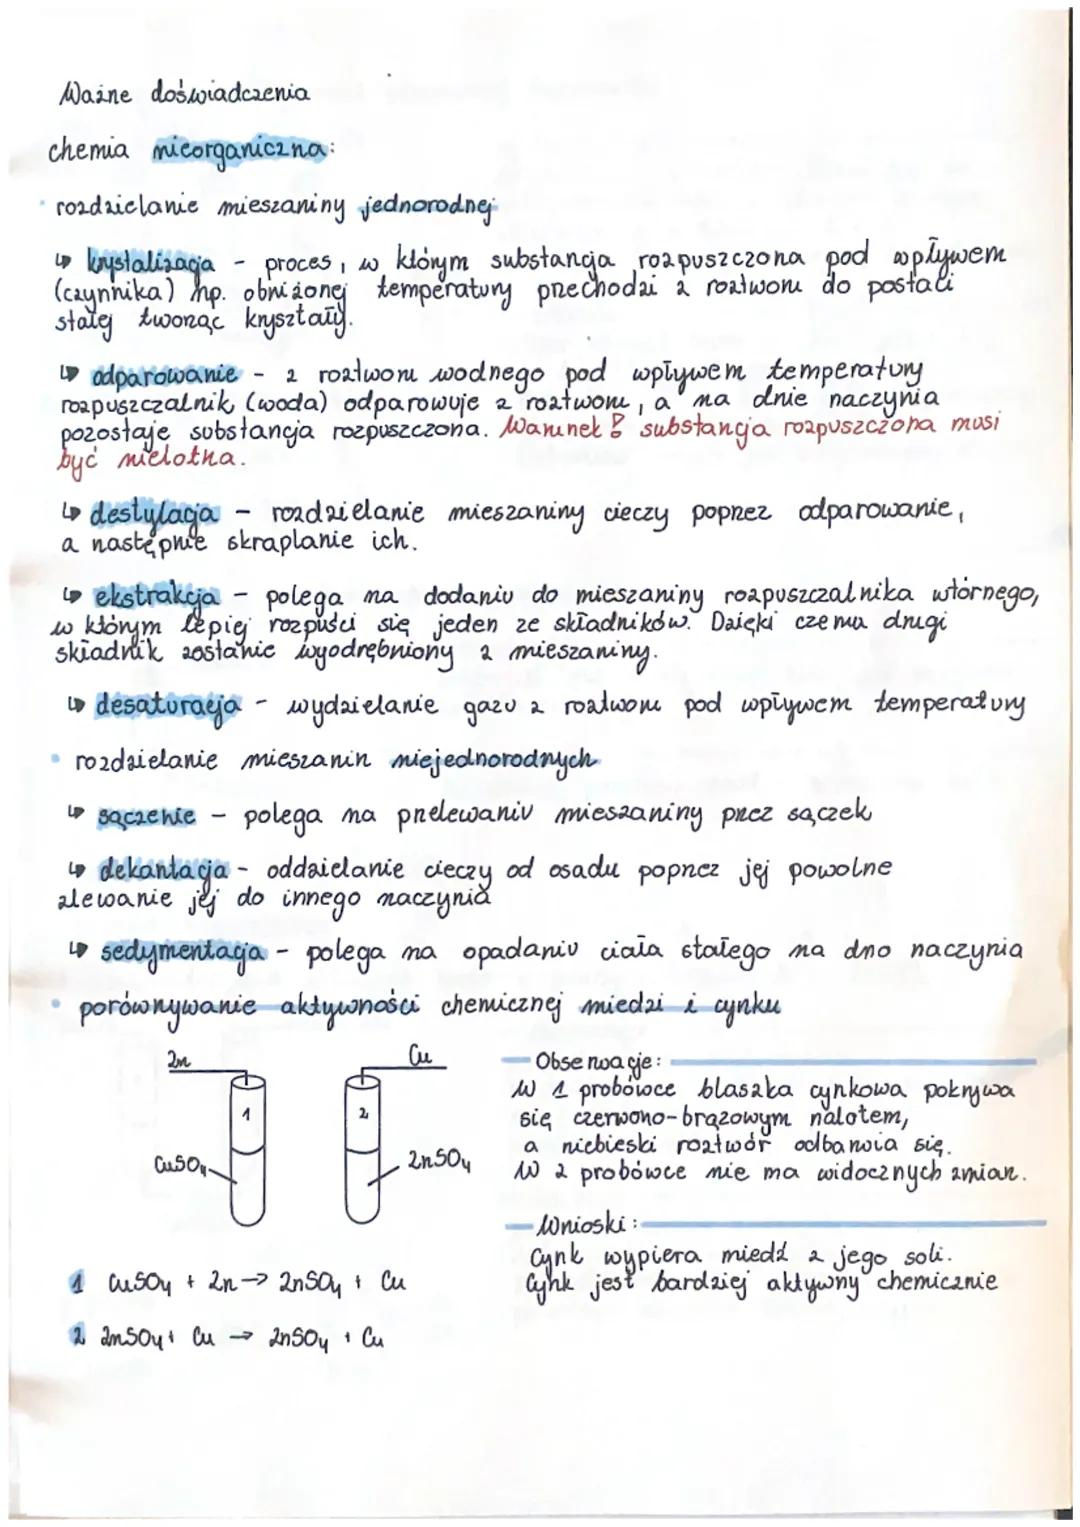 Ważne doświadczenia
chemia nieorganiczna:
rozdzielanie mieszaniny jednorodnej
↳ krystalizacja - proces, w którym substancja rozpuszczona pod wpływem
(czynnika) np. obniżonej temperatury przechodzi z roztworu do postaci
stałej tworząc kryształy.
↳ odparowanie - z roztworu wodnego pod wpływem temperatury
rozpuszczalnik (woda) odparowuje z roztworu, a na dnie naczynia
pozostaje substancja rozpuszczona. Warunek! substancja rozpuszczona musi
być nielotna.
↳ destylacja - rozdzielanie mieszaniny cieczy poprzez odparowanie,
a następnie skraplanie ich.
↳ ekstrakcja - polega na dodaniu do mieszaniny rozpuszczalnika wtórnego,
w którym lepiej rozpuści się jeden ze składników. Dzięki czemu drugi
składnik zostanie wyodrębniony z mieszaniny.
↳ desaturacja - wydzielanie gazu z roztworu pod wpływem temperatury
rozdzielanie mieszanin niejednorodnych
↳ sączenie - polega na przelewaniu mieszaniny przez sączek
↳ dekantacja - oddzielanie cieczy od osadu poprzez jej powolne
zlewanie jej do innego naczynia
↳ sedymentacja - polega na opadaniu ciała stałego na dno naczynia
porównywanie aktywności chemicznej miedzi i cynku
Zn
Cu
1
2
CuSO4
ZnSO4
Obserwacje:
W 1 probówce blaszka cynkowa pokrywa
się czerwono-brązowym nalotem,
a niebieski roztwór odbarwia się.
W 2 probówce nie ma widocznych zmian.
Wnioski:
Cynk wypiera miedź z jego soli.
Cynk jest bardziej aktywny chemicznie
1 CuSO4 + Zn → ZnSO4 + Cu
2 ZnSO4 + Cu → ZnSO4 + Cu